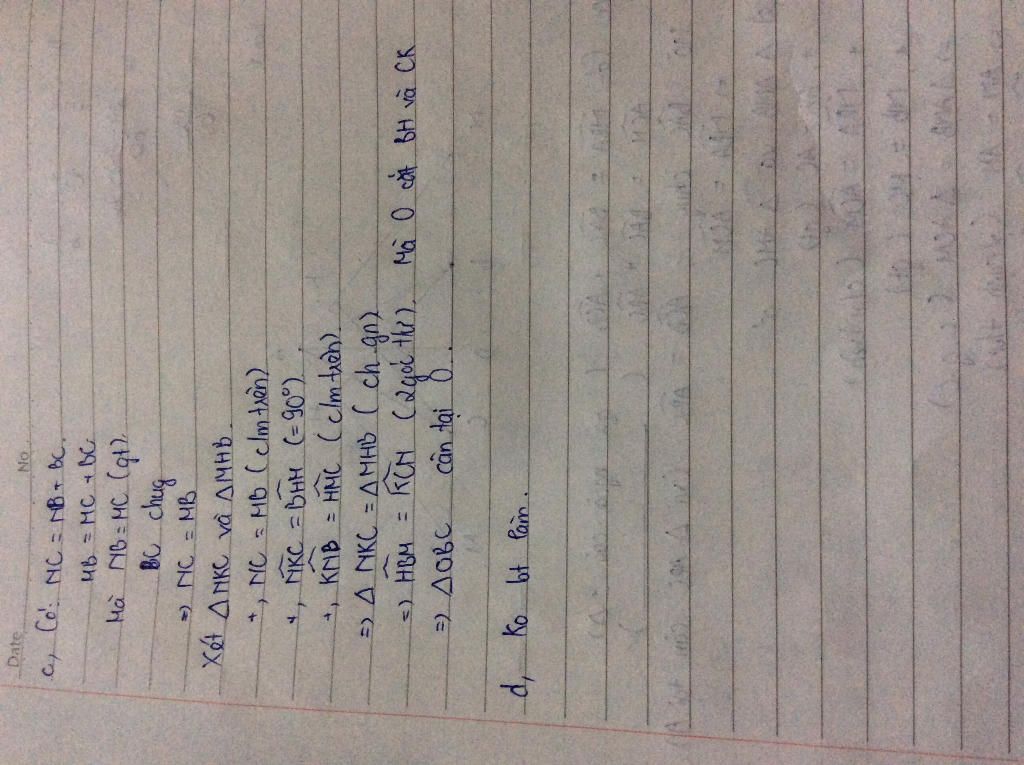 Date No.
c, Có: NC = NB + BC.
MB = MC + BC
Mà NB = MC (gt).
BC chug
=> NC = MB
Xét △NKC và △MHB.
+, NC = MB (c/m trên)
+, NKC = BHM (=90°)
+, KNB = HMC (c/m trên).
=> △NKC = △MHB (ch.gn)
=> HBM = KCN (2góc tư). Mà O cắt BH và CK
=> △OBC cân tại O.
d, Ko bt làm.